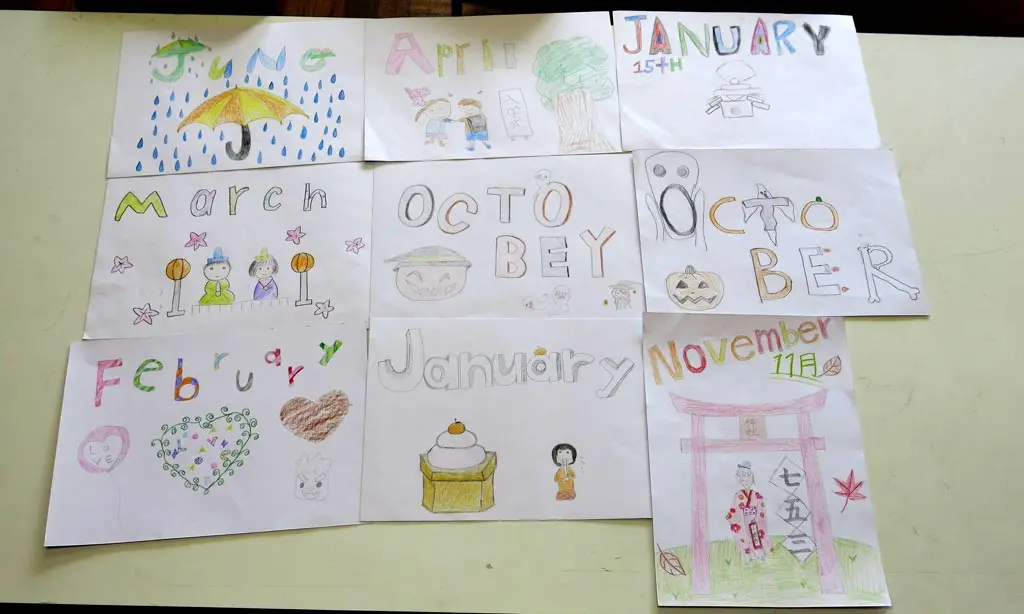 JuNe
April
入学式
JANUARY
15TH
March
OCTO
BEY
OCTO
BER
February
LO
VE
January
November
11月
神社
七
五
三